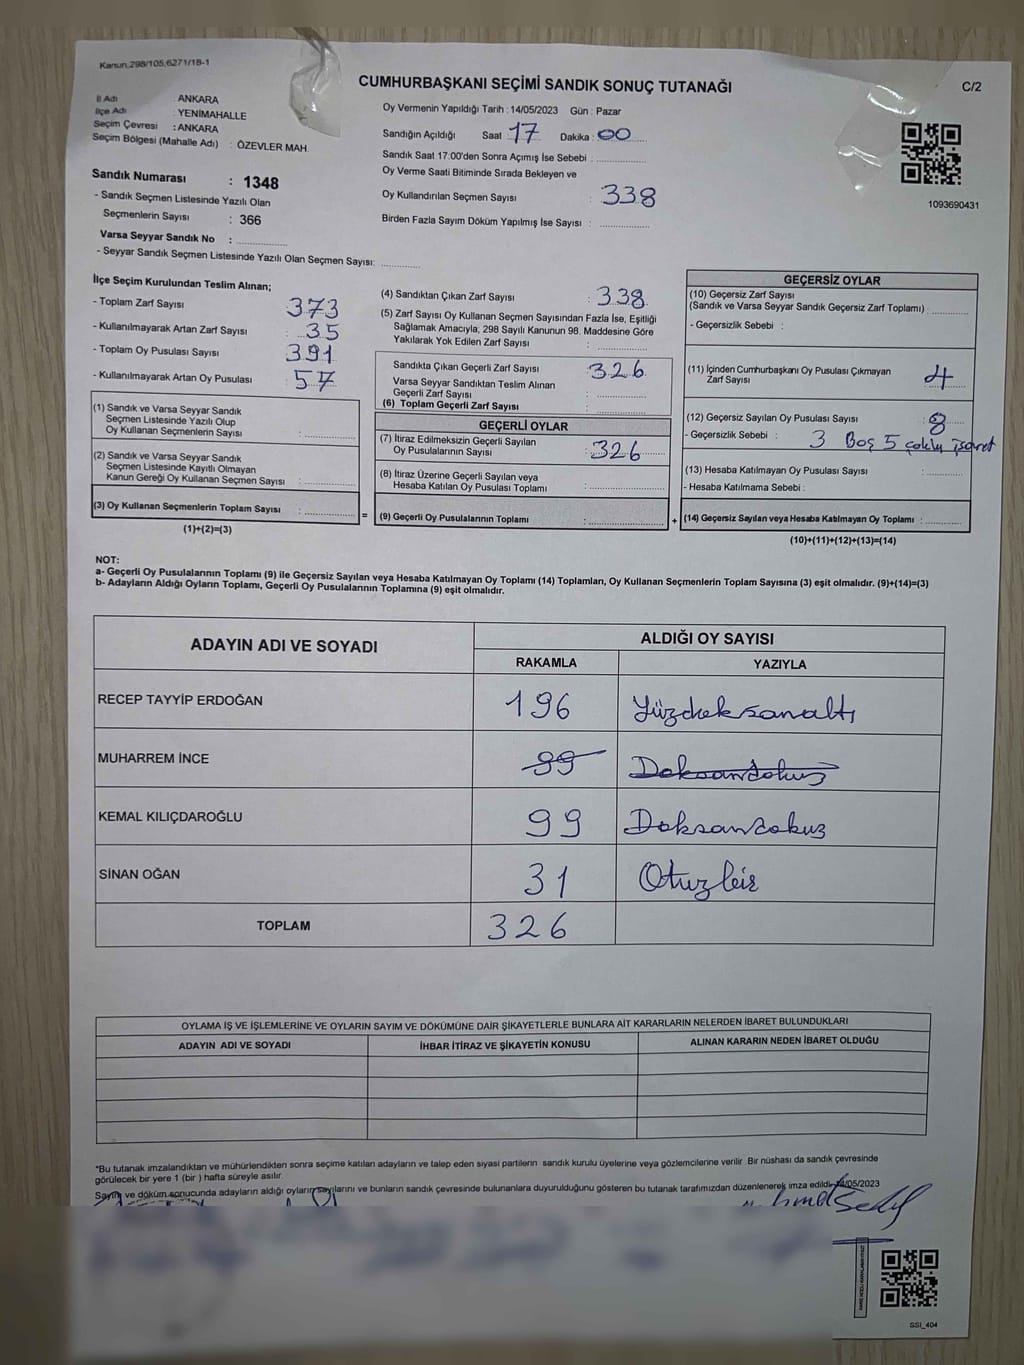 Kanun,298/105,6271/18-1
CUMHURBAŞKANI SEÇİMİ SANDIK SONUÇ TUTANAĞI
C/2
İl Adı : ANKARA
İlçe Adı : YENİMAHALLE
Seçim Çevresi : ANKARA
Seçim Bölgesi (Mahalle Adı) : ÖZEVLER MAH.
Sandık Numarası : 1348
- Sandık Seçmen Listesinde Yazılı Olan
Seçmenlerin Sayısı : 366
Varsa Seyyar Sandık No :
- Seyyar Sandık Seçmen Listesinde Yazılı Olan Seçmen Sayısı:
Oy Vermenin Yapıldığı Tarih : 14/05/2023 Gün : Pazar
Sandığın Açıldığı Saat : 17 Dakika : 00
Sandık Saat 17:00'den Sonra Açımış İse Sebebi :
Oy Verme Saati Bitiminde Sırada Bekleyen ve
Oy Kullandırılan Seçmen Sayısı : 338
Birden Fazla Sayım Döküm Yapılmış İse Sayısı :
1093690431
İlçe Seçim Kurulundan Teslim Alınan;
- Toplam Zarf Sayısı : 373
- Kullanılmayarak Artan Zarf Sayısı : 35
- Toplam Oy Pusulası Sayısı : 391
- Kullanılmayarak Artan Oy Pusulası : 57
(1) Sandık ve Varsa Seyyar Sandık
Seçmen Listesinde Yazılı Olup
Oy Kullanan Seçmenlerin Sayısı :
(2) Sandık ve Varsa Seyyar Sandık
Seçmen Listesinde Kayıtlı Olmayan
Kanun Gereği Oy Kullanan Seçmen Sayısı :
(3) Oy Kullanan Seçmenlerin Toplam Sayısı :
(1)+(2)=(3)
=
(4) Sandıktan Çıkan Zarf Sayısı : 338
(5) Zarf Sayısı Oy Kullanan Seçmen Sayısından Fazla İse, Eşitliği
Sağlamak Amacıyla, 298 Sayılı Kanunun 98. Maddesine Göre
Yakılarak Yok Edilen Zarf Sayısı :
Sandıkta Çıkan Geçerli Zarf Sayısı : 326
Varsa Seyyar Sandıktan Teslim Alınan
Geçerli Zarf Sayısı :
(6) Toplam Geçerli Zarf Sayısı :
GEÇERLİ OYLAR
(7) İtiraz Edilmeksizin Geçerli Sayılan
Oy Pusulalarının Sayısı : 326
(8) İtiraz Üzerine Geçerli Sayılan veya
Hesaba Katılan Oy Pusulası Toplamı :
(9) Geçerli Oy Pusulalarının Toplamı :
+
GEÇERSİZ OYLAR
(10) Geçersiz Zarf Sayısı
(Sandık ve Varsa Seyyar Sandık Geçersiz Zarf Toplamı) :
- Geçersizlik Sebebi :
(11) İçinden Cumhurbaşkanı Oy Pusulası Çıkmayan
Zarf Sayısı : 4
(12) Geçersiz Sayılan Oy Pusulası Sayısı : 8
- Geçersizlik Sebebi : 3 Boş 5 çoklu işaret
(13) Hesaba Katılmayan Oy Pusulası Sayısı :
- Hesaba Katılmama Sebebi :
(14) Geçersiz Sayılan veya Hesaba Katılmayan Oy Toplamı :
(10)+(11)+(12)+(13)=(14)
NOT:
a- Geçerli Oy Pusulalarının Toplamı (9) ile Geçersiz Sayılan veya Hesaba Katılmayan Oy Toplamı (14) Toplamları, Oy Kullanan Seçmenlerin Toplam Sayısına (3) eşit olmalıdır. (9)+(14)=(3)
b- Adayların Aldığı Oyların Toplamı, Geçerli Oy Pusulalarının Toplamına (9) eşit olmalıdır.
ADAYIN ADI VE SOYADI
ALDIĞI OY SAYISI
RAKAMLA YAZIYLA
RECEP TAYYİP ERDOĞAN 196 Yüzdoksanaltı
MUHARREM İNCE 99 Doksandokuz
KEMAL KILIÇDAROĞLU 99 Doksandokuz
SİNAN OĞAN 31 Otuzbir
TOPLAM 326
OYLAMA İŞ VE İŞLEMLERİNE VE OYLARIN SAYIM VE DÖKÜMÜNE DAİR ŞİKAYETLERLE BUNLARA AİT KARARLARIN NELERDEN İBARET BULUNDUKLARI
ADAYIN ADI VE SOYADI İHBAR İTİRAZ VE ŞİKAYETİN KONUSU ALINAN KARARIN NEDEN İBARET OLDUĞU
*Bu tutanak imzalandıktan ve mühürlendikten sonra seçime katılan adayların ve talep eden siyasi partilerin sandık kurulu üyelerine veya gözlemcilerine verilir. Bir nüshası da sandık çevresinde
görülecek bir yere 1 (bir ) hafta süreyle asılır.
Sayım ve döküm sonucunda adayların aldığı oyların sayılarını ve bunların sandık çevresinde bulunanlara duyurulduğunu gösteren bu tutanak tarafımızdan düzenlenerek imza edildi. 14/05/2023
SSI_404